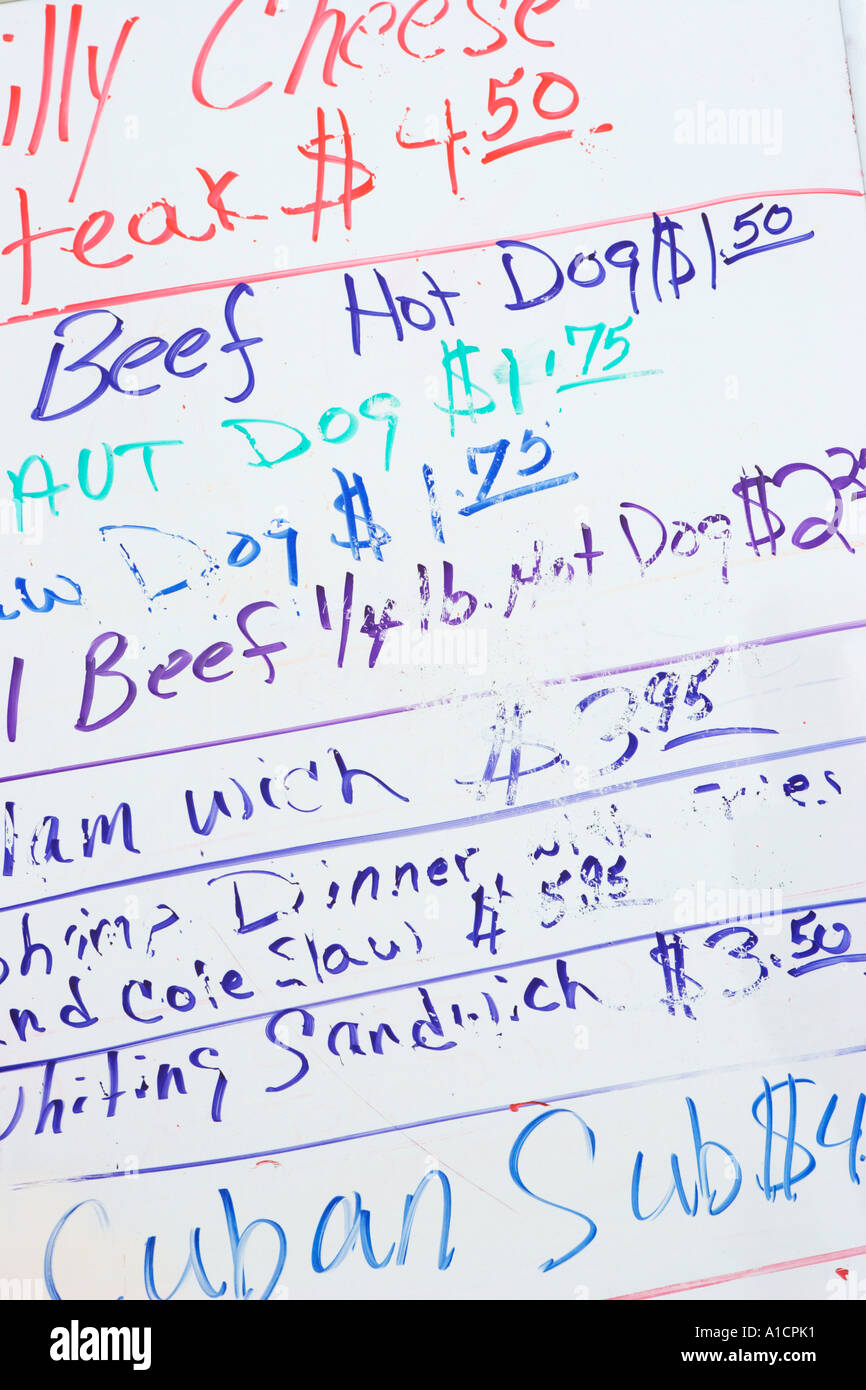 illy Cheese
teak $4.50
Beef Hot Dog $1.50
AUT Dog $1.75
aw Dog $1.75
l Beef 1/4 lb. Hot Dog $2.25
Ham wich $.3.95
Shrimp Dinner with Fries
and Cole Slaw $5.95
Whiting Sandwich $3.50
Cuban Sub $4.
alamy
Image ID: A1CPK1
www.alamy.com